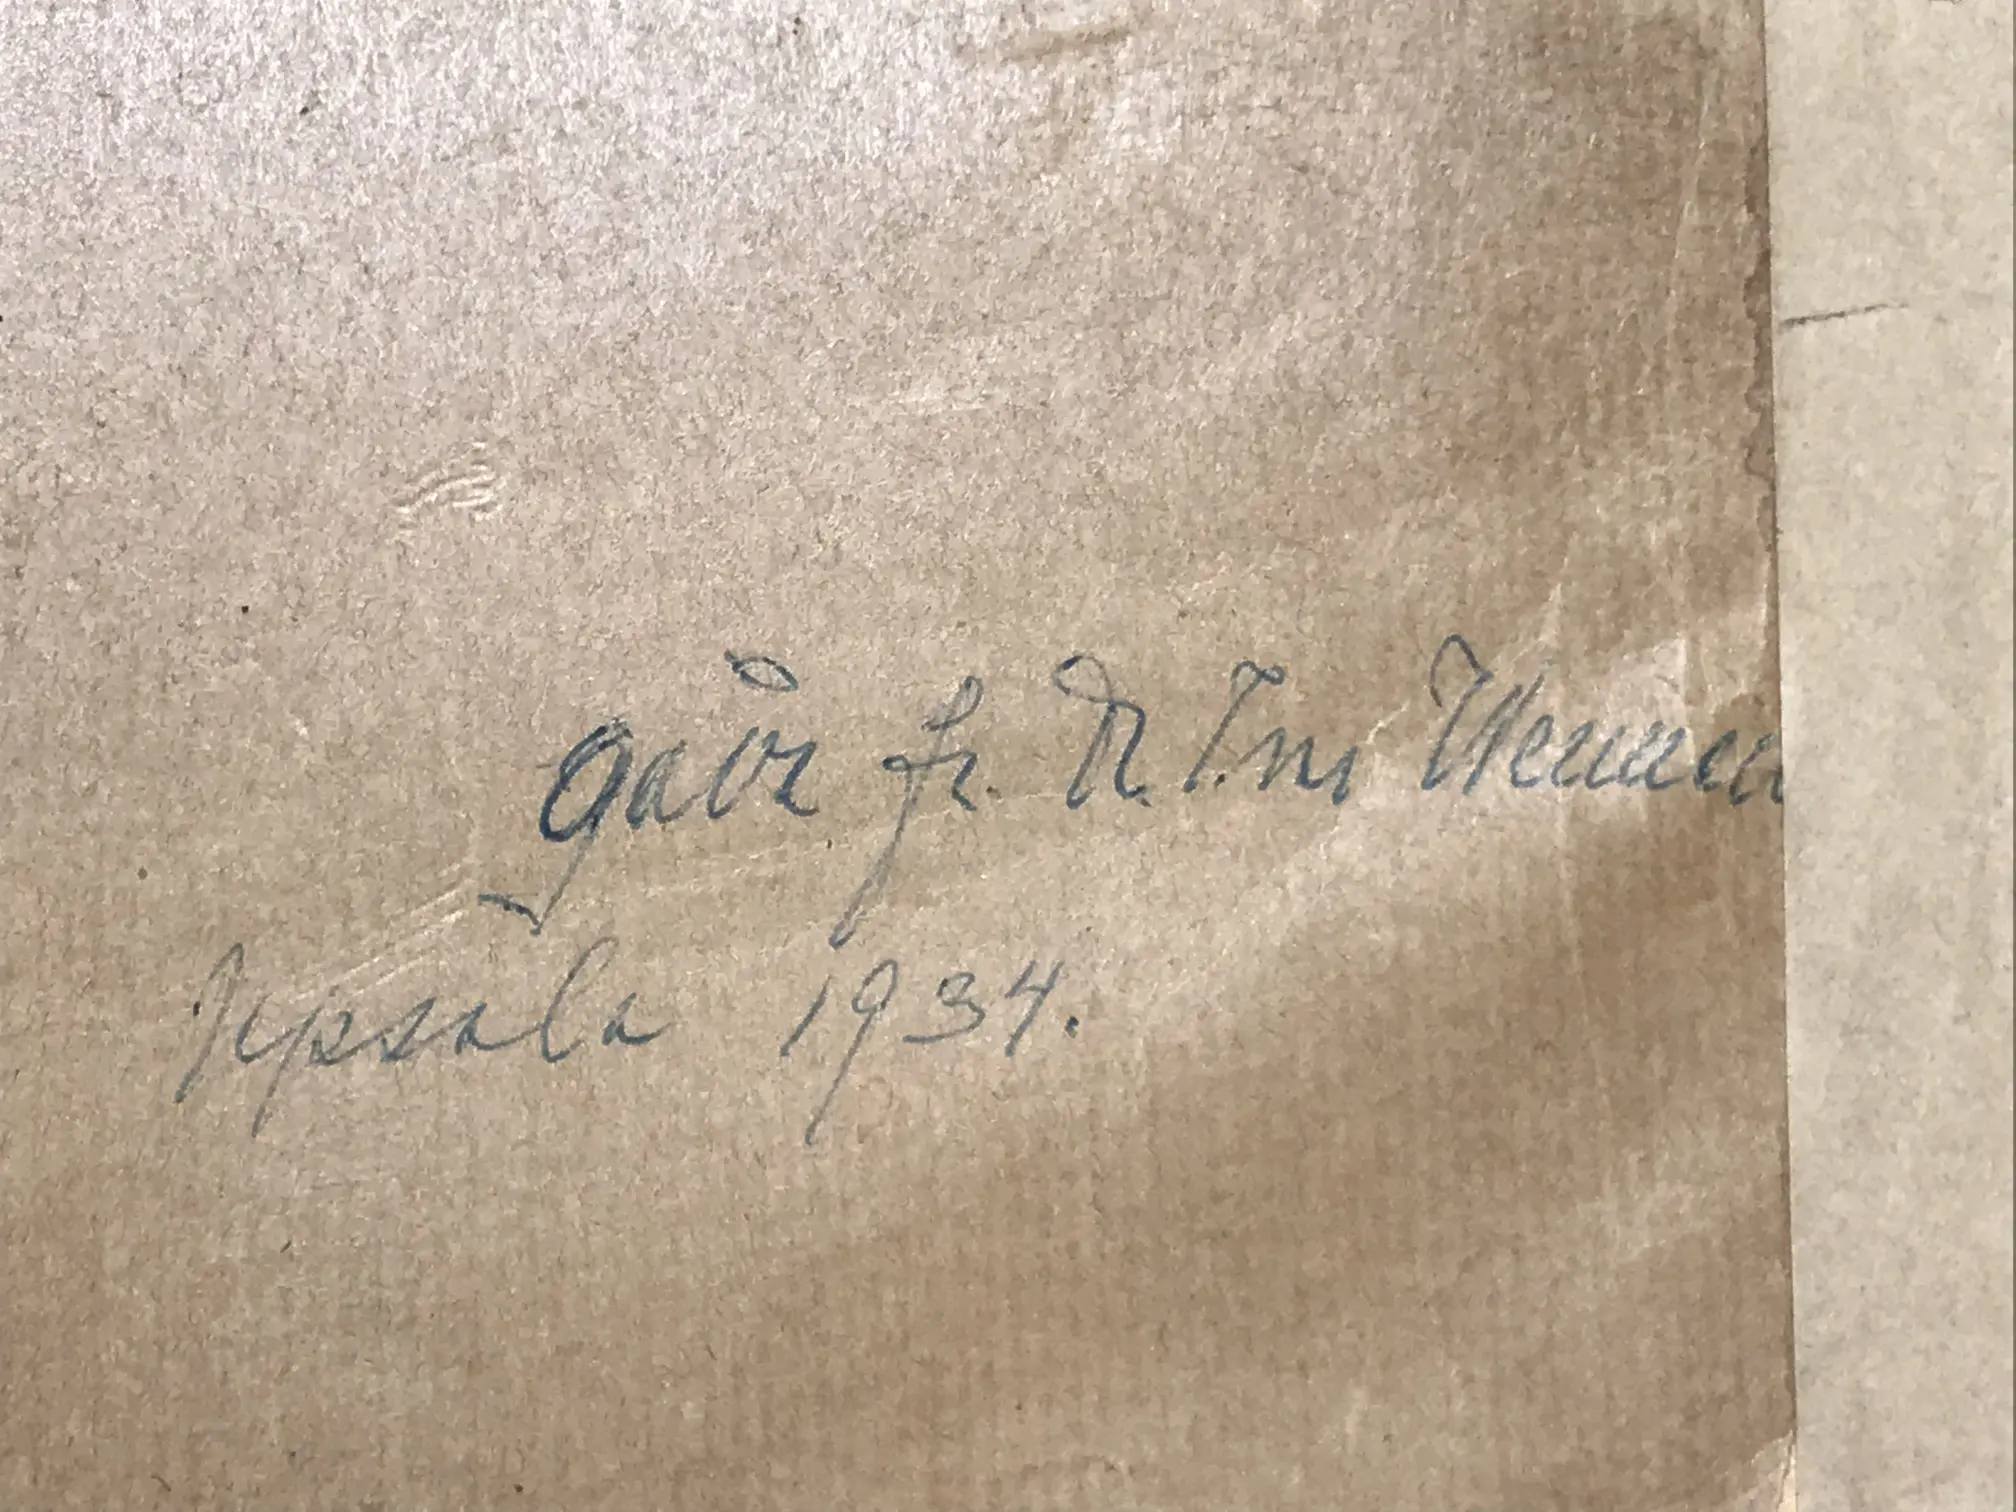 gåva fr. Dr. T:m Wennen
Upsala 1934.